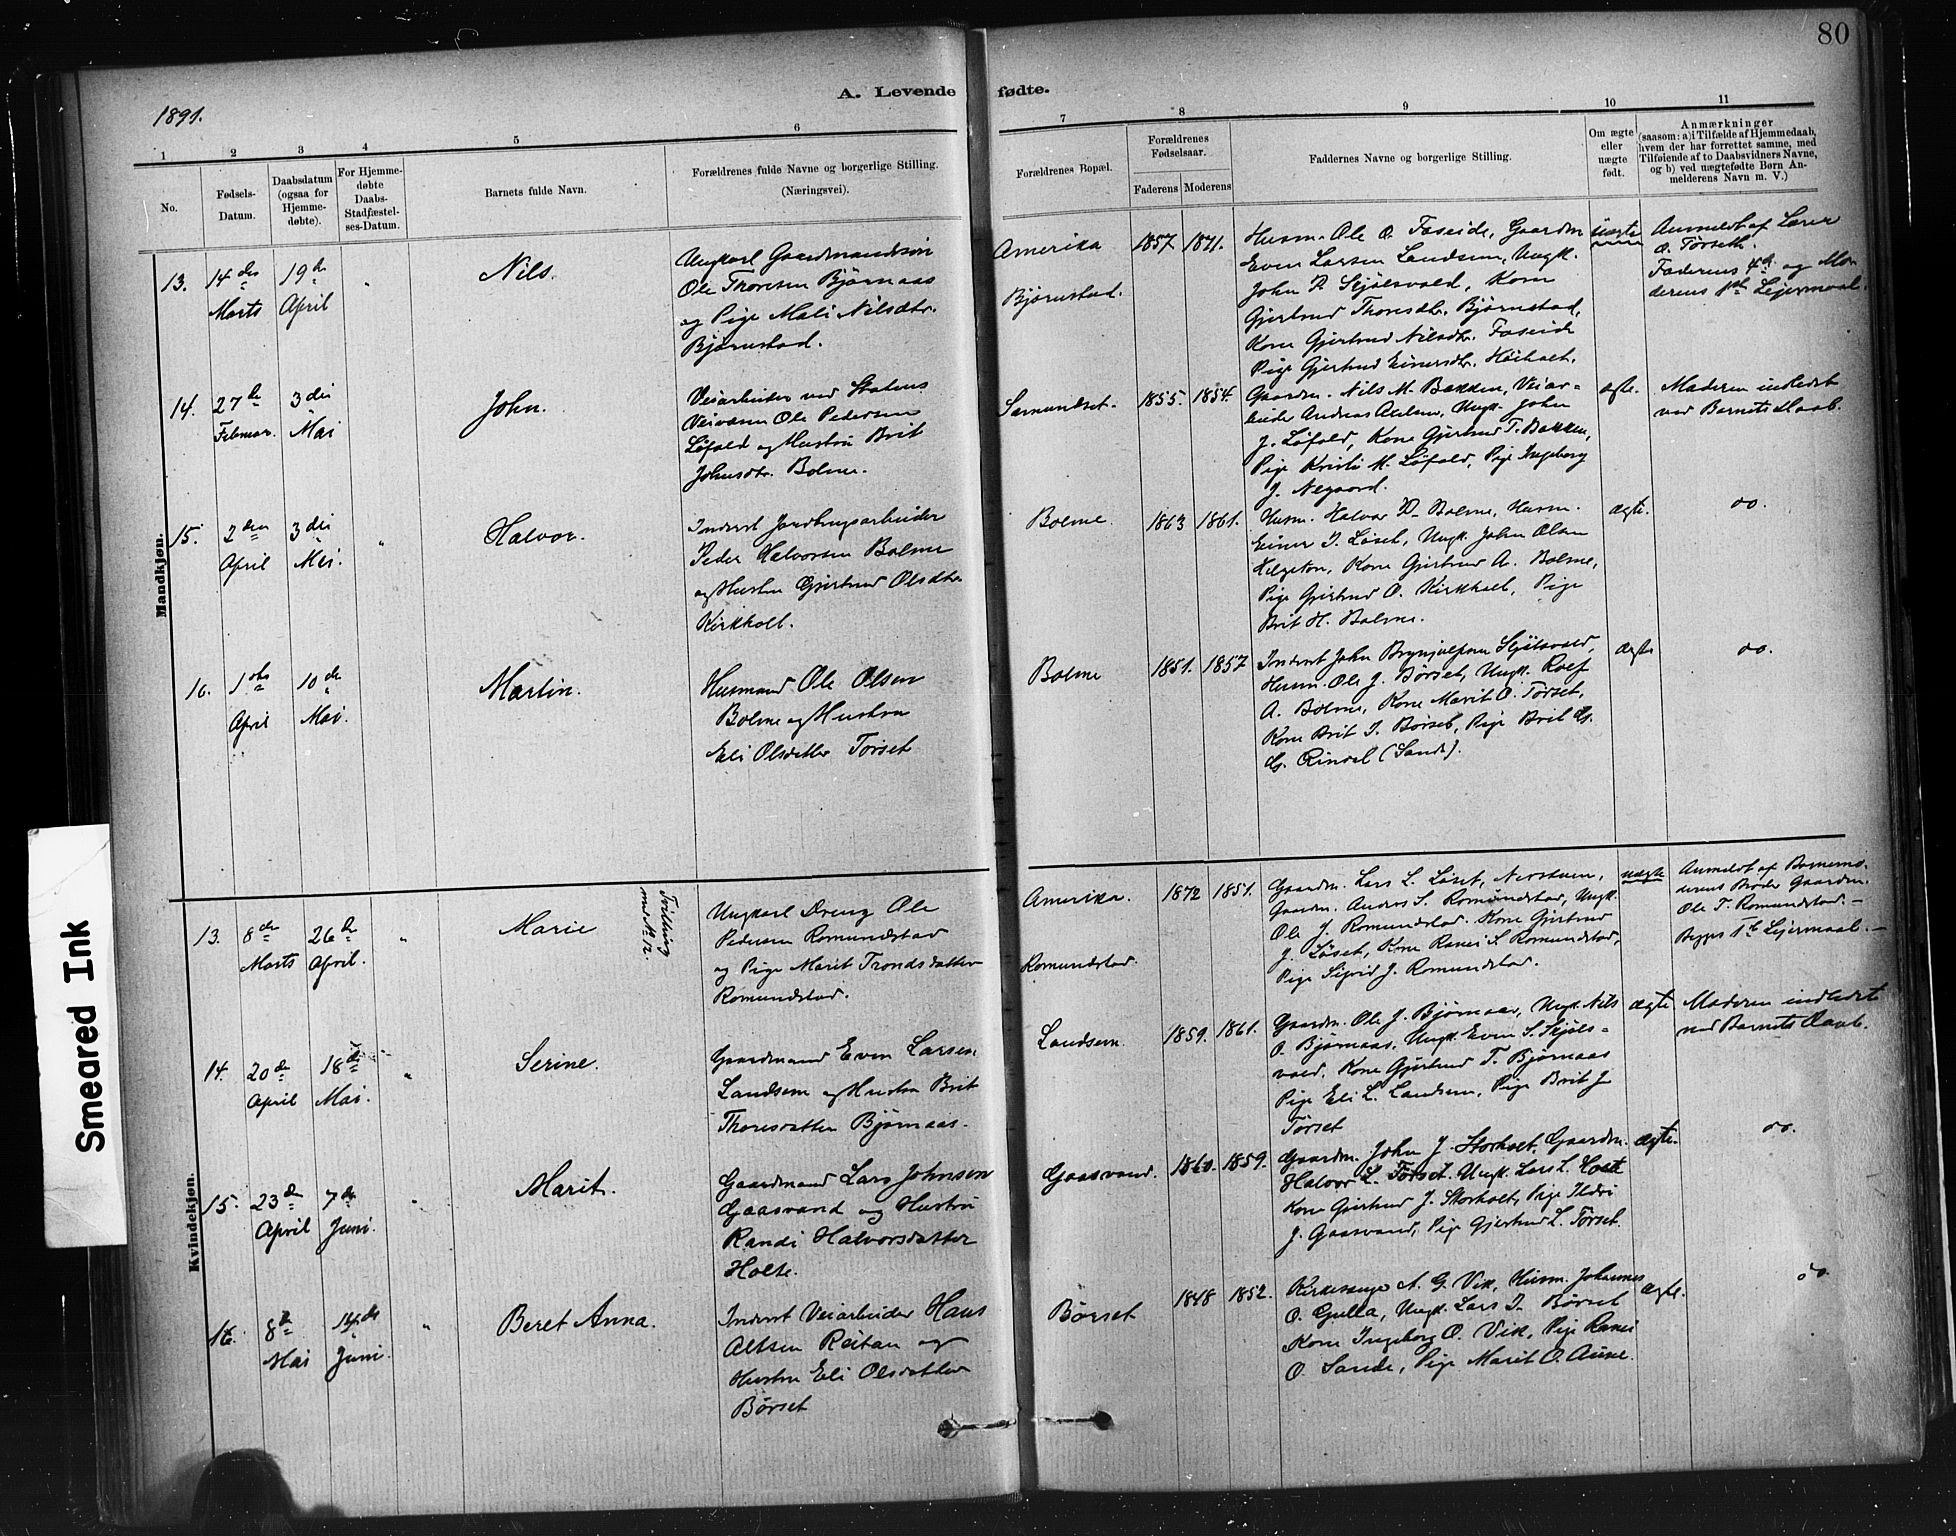 80
A. Levende fødte.
1891.
1 2 3 4 5 6 7 8 9 10 11
No.
Fødsels-
Datum.
Daabsdatum
(ogsaa for
Hjemme-
døbte).
For Hjemme-
døbte
Daabs-
Stadfæstel-
ses-Datum.
Barnets fulde Navn.
Forældrenes fulde Navne og borgerlige Stilling.
(Næringsvei).
Forældrenes Bopæl.
Forældrenes
Fødselsaar.
Faderens Moderens
Faddernes Navne og borgerlige Stilling.
Om ægte
eller
uægte
født.
Anmærkninger
(saasom: a) i Tilfælde af Hjemmedaab,
hvem der har forrettet samme, med
Tilføiende af to Daabsvidners Navne,
og b) ved uægtefødte Børn An-
melderens Navn m. V.)
Mandkjøn.
13.
14de
Marts
19de
April
"
Nils.
Ungkarl Gaardmandssøn
Ole Thoresen Bjørnaas
og Pige Mali Nilsdtr.
Bjørnstad.
Amerika
Bjørnstad.
1857. 1871.
Husm. Ole O. Fóseide, Gaardm
Even Larsen Landsem, Ungk.
John P. Skjølsvold, Kone
Gjertrud Thoresdtr. Bjørnstad,
Kone Gjertrud Nilsdtr. Foseide
Pige Gjertrud Einersdtr. Høiholt.
uægte
Anmeldt af Lærer
O. Tørseth.
Faderens 4de og Mo
derens 1ste Lejermaal.
14.
27de
Februar.
3die
Mai
John.
Veiarbeider ved Statens
Veivæsen Ole Pedersen
Løfald og Hustru Brit
Johnsdtr. Bolme.
Sæmundset.
1855. 1854.
Gaardm. Nils M. Bakken, Veiar-
beider Andreas Axelsen, Ungk. John
J. Løfald, Kone Gjertrud T. Bakken,
Pige Kristi M. Løfald, Pige Ingeborg
J. Negaard.
ægte.
Moderen indledet
ved Barnets Daab.
15.
2den
April
3die
Mai.
"
Halvor.
Inderst Jordbrugsarbeider
Peder Halvorsen Bolme
og Hustru Gjertrud Olsdtr
Kirkholt.
Bolme.
1863 1861.
Husm. Halvor P. Bolme, Husm.
Einer I. Løset, Ungk. John Olsen
Helgeton, Kone Gjertrud A. Bolme,
Pige Gjertrud O. Kirkholt, Pige
Brit H. Bolme.
ægte.
do.
16.
1ste
April
10de
Mai.
Martin.
Husmand Ole Olsen
Bolme og Hustru
Eli Olsdatter Tørset
Bolme
1851. 1857
Inderst John Brynjulfsen Skjølsvold,
Husm. Ole J. Børset, Ungk. Rolf
A. Bolme, Kone Marit O. Tørset,
Kone Brit I. Børset, Pige Brit G.
G. Rindal (Sande).
ægte
do.
Kvindekjøn.
13.
8de
Marts
26de
April.
"
Marie
Tvilling
med No 12.
Ungkarl Dreng Ole
Pedersen Romundstad
og Pige Marit Trondsdatter
Romundstad.
Amerika.
Romundstad.
1872 1851.
Gaardm. Lars L. Løset, Nerstuen,
Gaardm. Anders S. Romundstad, Ungk.
Ole J. Romundstad. Kone Gjertrud
J. Løset, Kone Randi S. Romundstad,
Pige Sigrid J. Romundstad.
uægte
Anmeldt af Barnemo.
derens Broder Gaardm.
Ole T. Romundstad. –
Begges 1ste Lejermaal. –
14.
20de
April
18de
Mai.
"
Serine.
Gaardmand Even Larsen
Landsem og Hustru Brit
Thoresdatter Bjørnaas.
Landsem.
1859. 1861.
Gaardm. Ole J. Bjørnaas, Ungk. Nils
O. Bjørnaas. Ungk. Even S. Skjøls-
vold, Kone Gjertrud T. Bjørnaas
Pige Eli L. Landsem, Pige Brit J.
Tørset
ægte
Moderen indledet
ved Barnets Daab.
15.
23de
April
7de
Juni.
"
Marit.
Gaardmand Lars Johnsen
Gaasvand og Hustru
Randi Halvorsdatter
Holte.
Gaasvand.
1860. 1859.
Gaardm. John J. Storholt, Gaardm.
Halvor L. Tørset. Ungk. Lars L. Holte
Kone Gjertrud J. Storholt, Pige Ildri
J. Gaasvand, Pige Gjertrud L. Tørset.
ægte.
do.
16.
8de
Mai
14de
Juni.
"
Beret Anna.
Inderst Veiarbeider Hans
Altsen Reitan og
Hustru Eli Olsdatter
Børset
Børset
1848 1852.
Kirkesanger A. G. Vik, Husm. Johannes
O. Gulla, Ungk. Lars I. Børset
Kone Ingeborg O. Vik, Pige Randi
O. Sande, Pige Marit O. Aune.
ægte.
do.
Smeared Ink